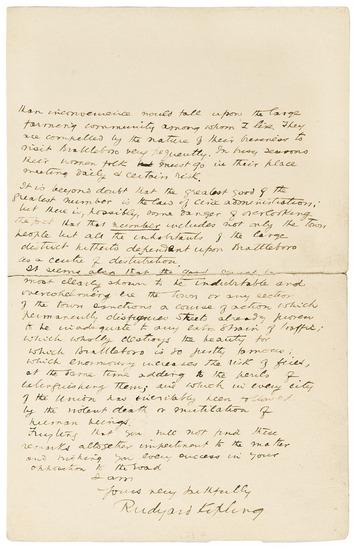 than inconvenience would fall upon the large
farming community among whom I live. They
are compelled by the nature of their business to
visit Brattleboro very frequently. In busy seasons
their women folk must go in their place
meeting daily a certain risk.
It is beyond doubt that the greatest good of the
greatest number is the law of civic administration;
but there is, possibly, some danger of overlooking
the fact that that number includes not only the town
people but all the inhabitants of the large
district hitherto dependent upon Brattleboro
as a centre of distribution.
It seems also that the good
most clearly shown to be indubitable and
overwhelming ere the town or any section
of the town sanctions a course of action which
permanently disfigures streets already proven
to be inadequate to any extra strain of traffic;
which wholly destroys the beauty for
which Brattleboro is so justly famous;
which enormously increases the risk of fires,
at the same time adding to the perils of
extinguishing them; and which in every city
of the Union has inevitably been followed
by the violent death or mutilation of
human beings.
Trusting that you will not find these
remarks altogether impertinent to the matter
and wishing you every success in your
opposition to the road
I am
Yours very faithfully
Rudyard Kipling